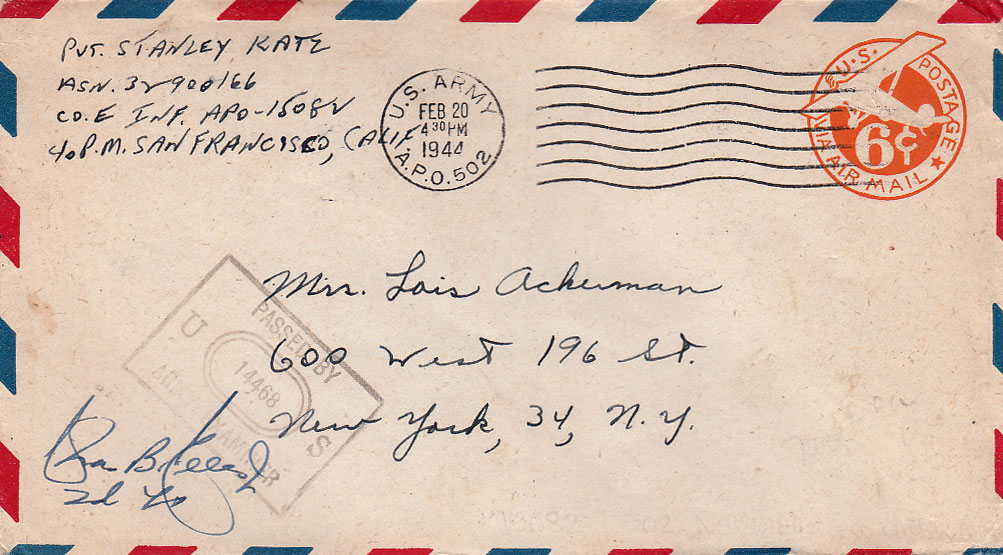 Pvt. STANLEY KATZ
ASN. 32900166
CO. E INF. APO-15082
c/o P.M. SAN FRANCISCO, CALIF.
U.S. ARMY
FEB 20
4 30 PM
1944
A.P.O. 502
U.S. POSTAGE
6¢
VIA AIR MAIL
Mrs. Lois Ackerman
600 West 196 St.
New York, 34, N.Y.
PASSED BY
U 14468 S
ARMY EXAMINER
2d